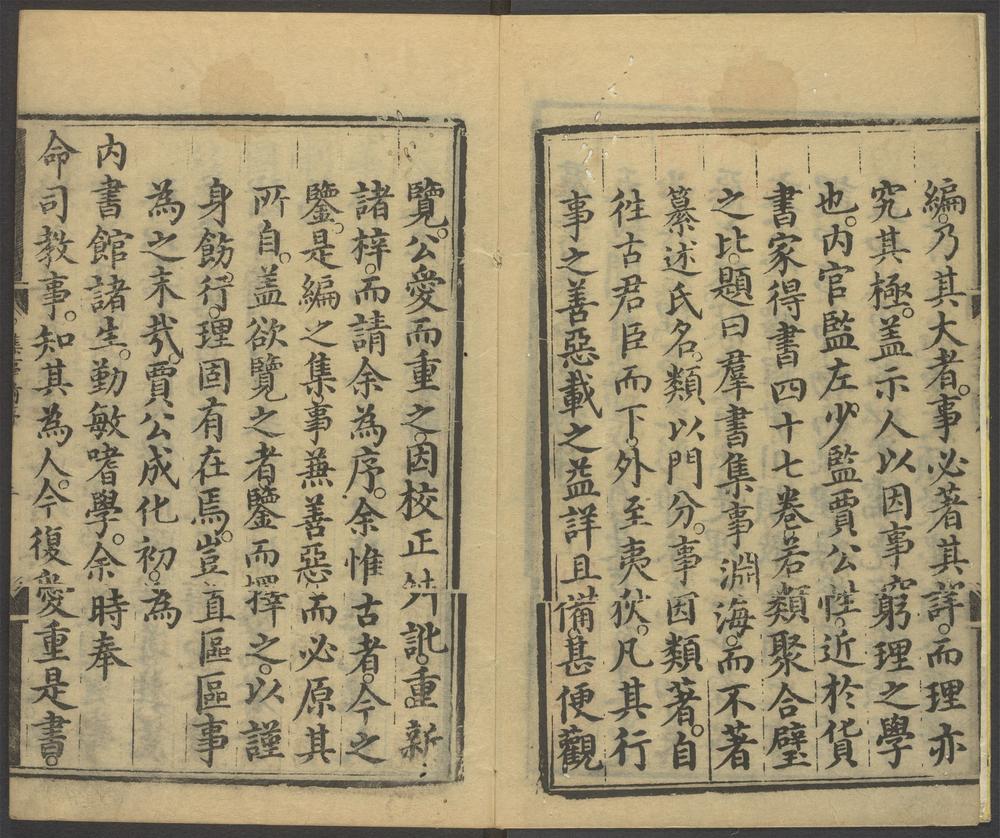 編。乃其大者。事必著其詳。而理亦
究其極。盖示人以因事窮理之學
也。内官監左少監賈公性。近於貨
書家得書四十七卷若類聚合璧
之比。題曰羣書集事淵海。而不著
纂述氏名。類以門分。事因類著。自
徃古君臣而下。外至夷狄。凡其行
事之善惡載之益詳且備。甚便觀
覽。公愛而重之。因校正舛訛。重新
諸梓。而請余為序。余惟古者。今之
鑒。是編之集事兼善惡而必原其
所自。盖欲覽之者鑒而擇之。以謹
身飭行。理固有在焉。豈直區區事
為之末㢤。賈公成化初。為
内書館諸生。勤敏嗜學。余時奉
命司教事。知其為人。今復愛重是書。